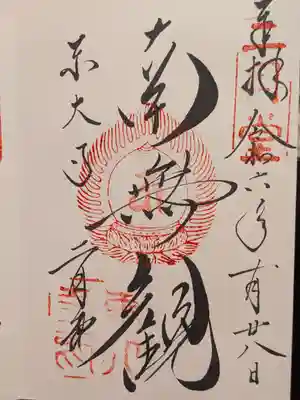 奉拝 令和六年 月廿八日
南無観
東大寺 二月堂